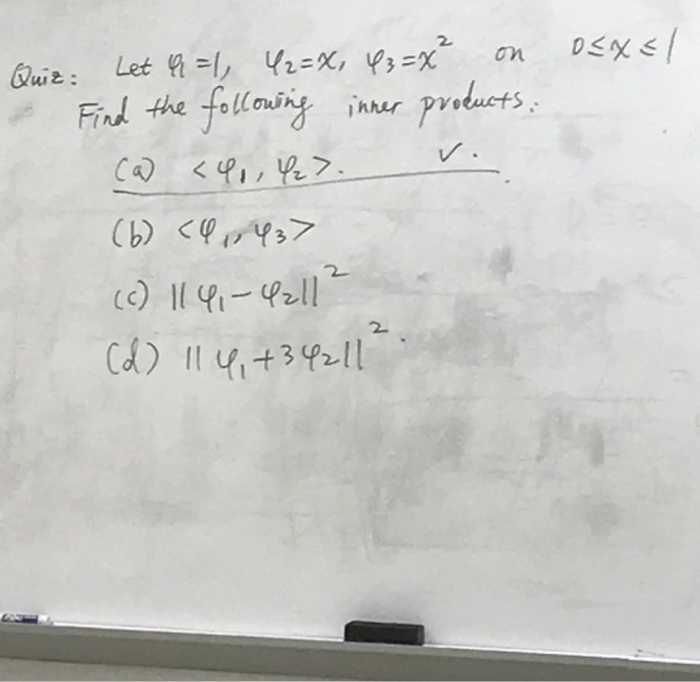 Quiz: Let φ₁=1, φ₂=x, φ₃=x² on 0≤x≤1
Find the following inner products:
(a) <φ₁, φ₂>. ✓.
(b) <φ₁, φ₃>
(c) ||φ₁-φ₂||²
(d) ||φ₁+3φ₂||².